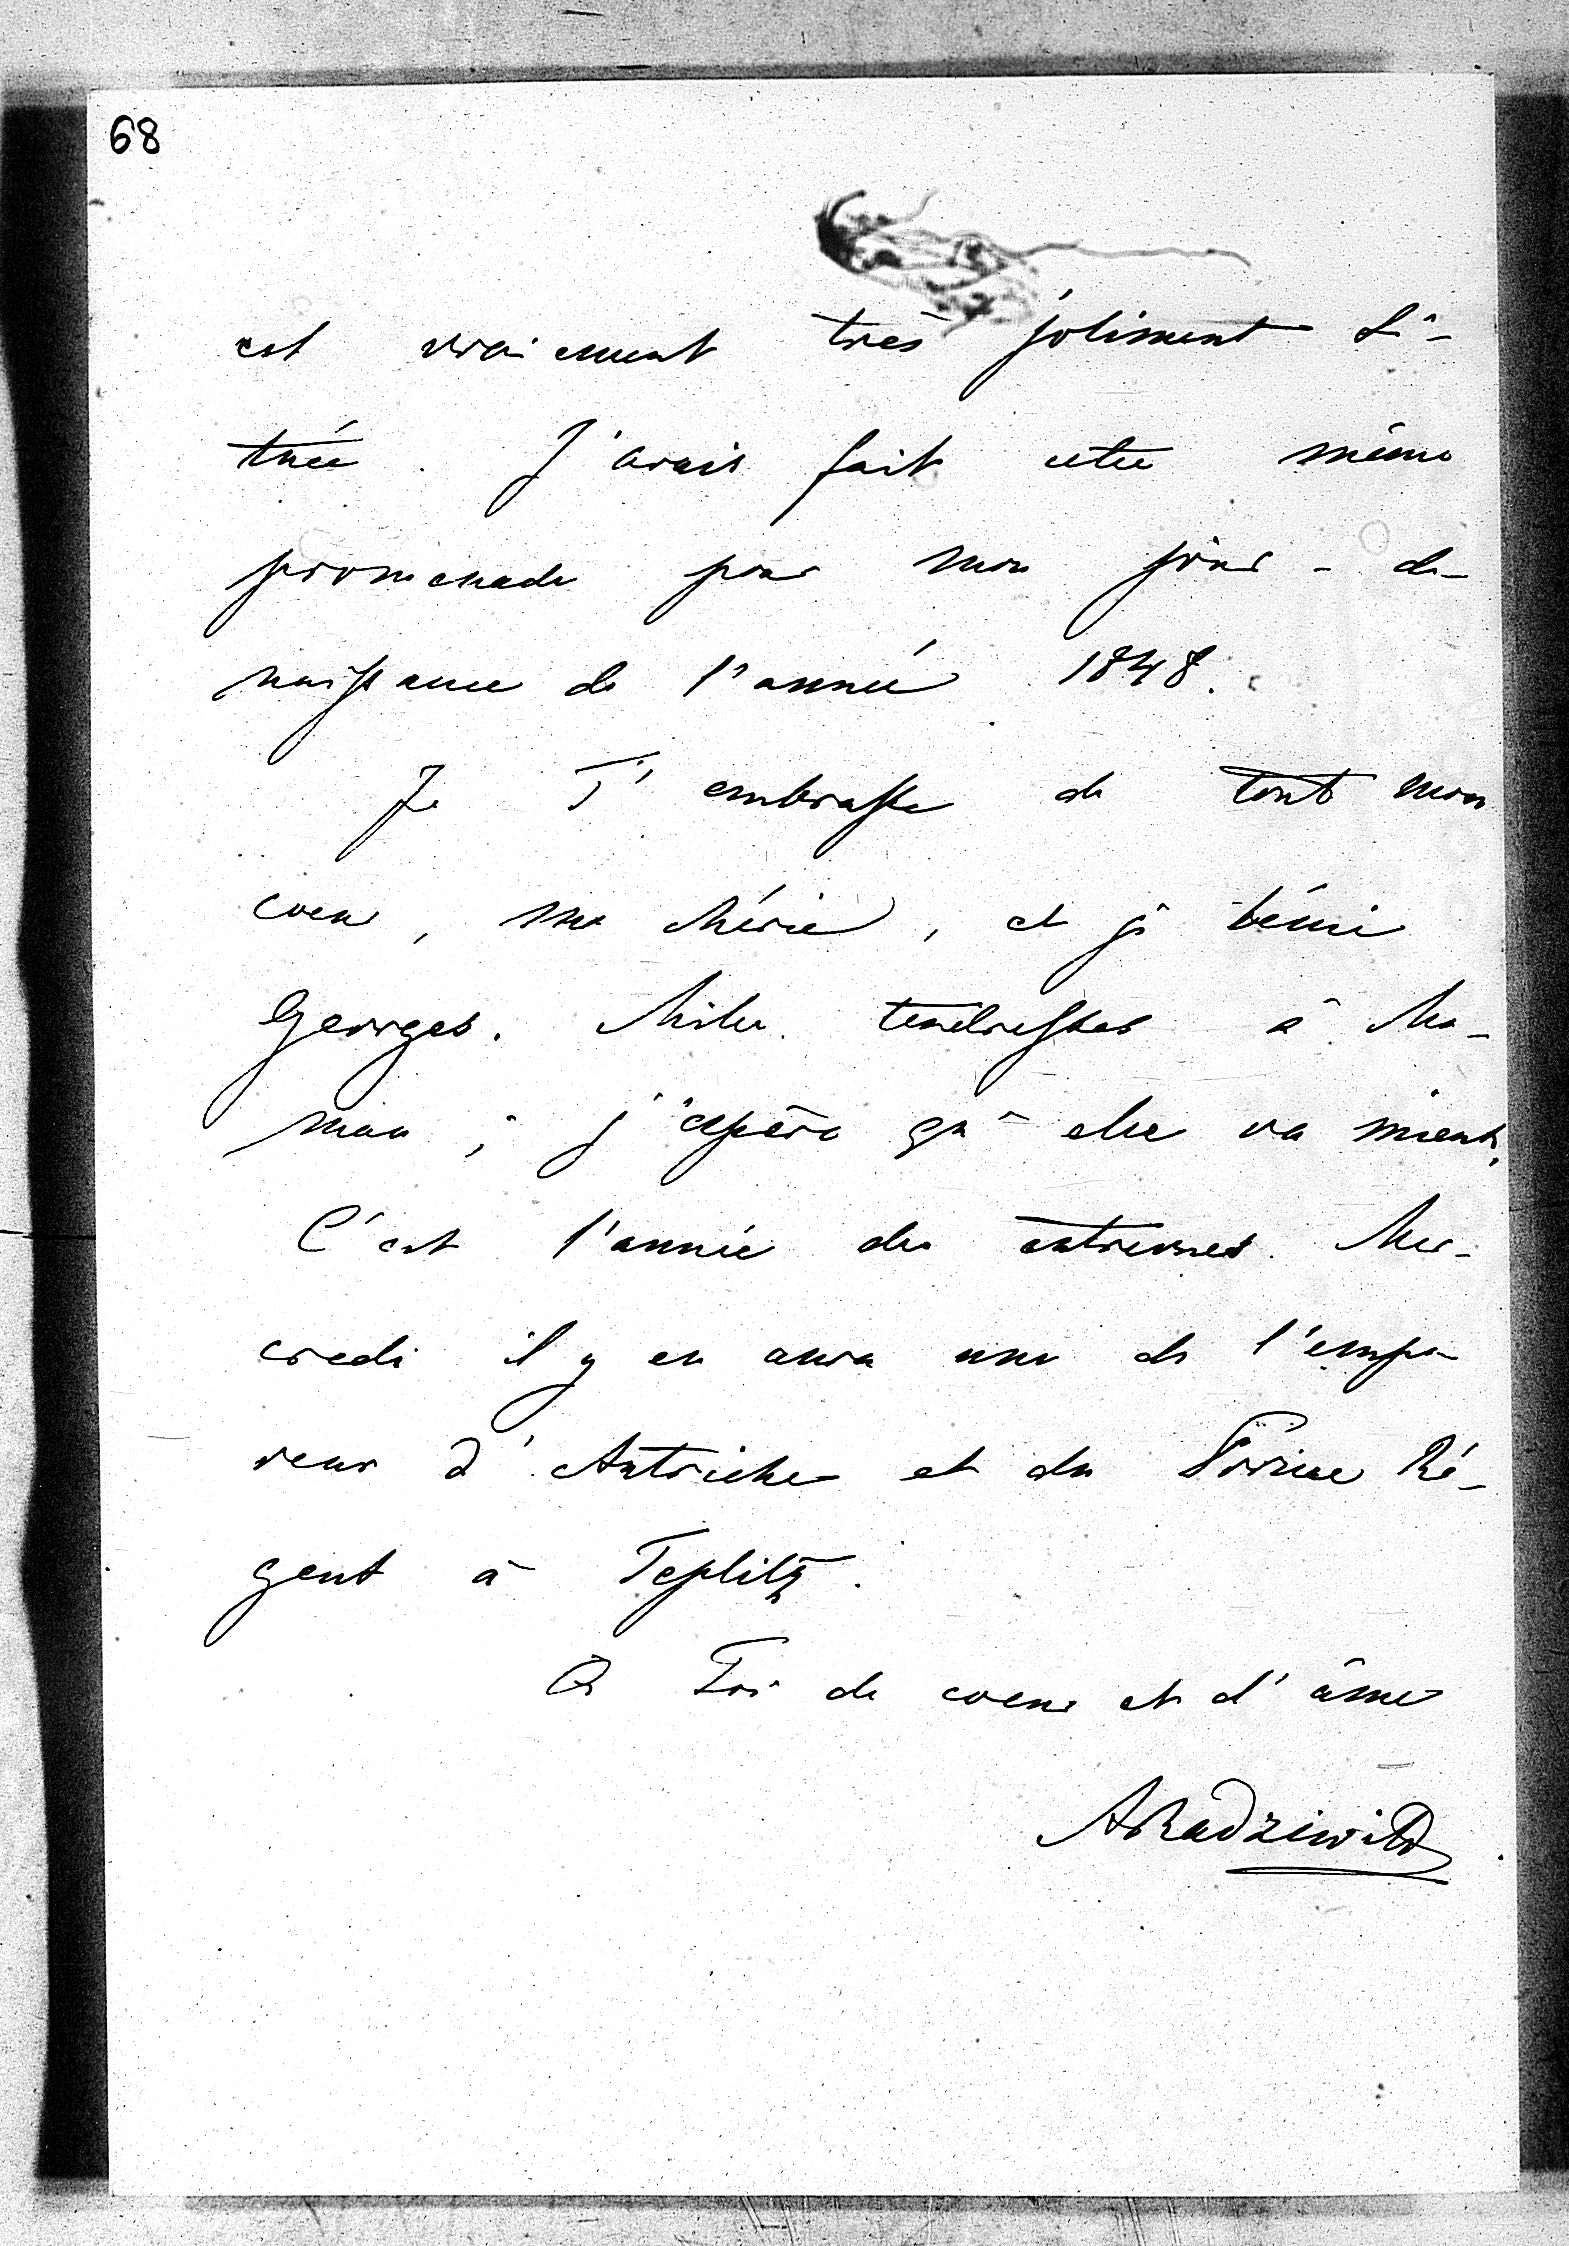 68
est vraiment très joliment si-
tuée. J'avais fait cette même
promenade pour mon jour-de-
naissance de l'année 1848.
Je T'embrasse de tout mon
coeur, ma chérie, et je béni
Georges. Milles tendresses à Ma-
man; j'espère qu'elle va mieux.
C'est l'année des entrevues. Mer-
credi il y en aura une de l'empe-
reur d'Autriche et du Prince Ré-
gent à Teplitz.
A Toi de coeur et d'âme
ARadziwill